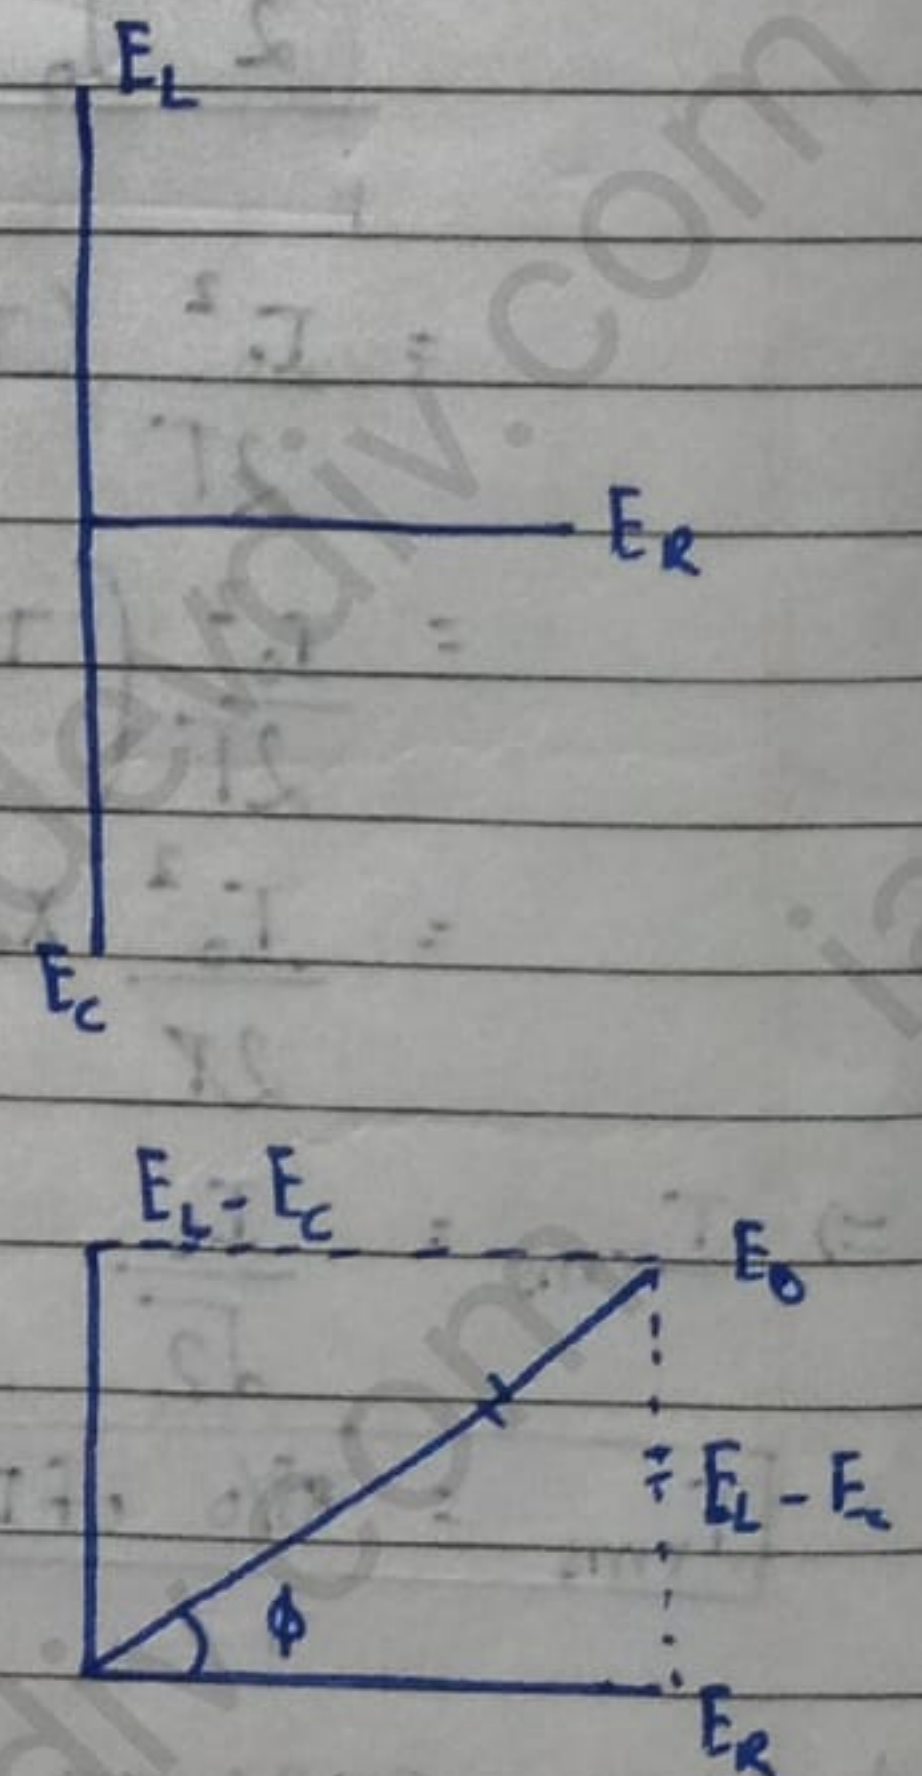 E_L
E_R
E_C
E_L - E_C
E_0
E_L - E_C
ϕ
E_R